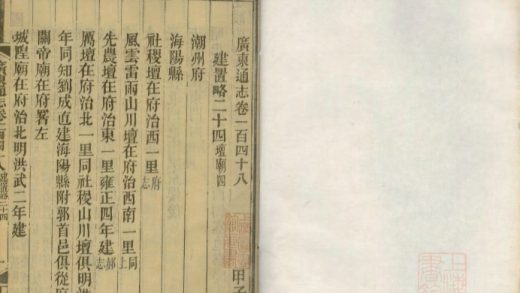 廣東通志卷一百四十八
建置略二十四 壇廟四
潮州府
海陽縣
社稷壇在府治西一里 府志
風雲雷雨山川壇在府治西南一里 同上
先農壇在府治東一里雍正四年建 郝志
厲壇在府治北一里同社稷山川壇俱明洪
年同知劉成直建海陽縣附郭首邑俱從
關帝廟在府署左
城隍廟在府治北明洪武二年建